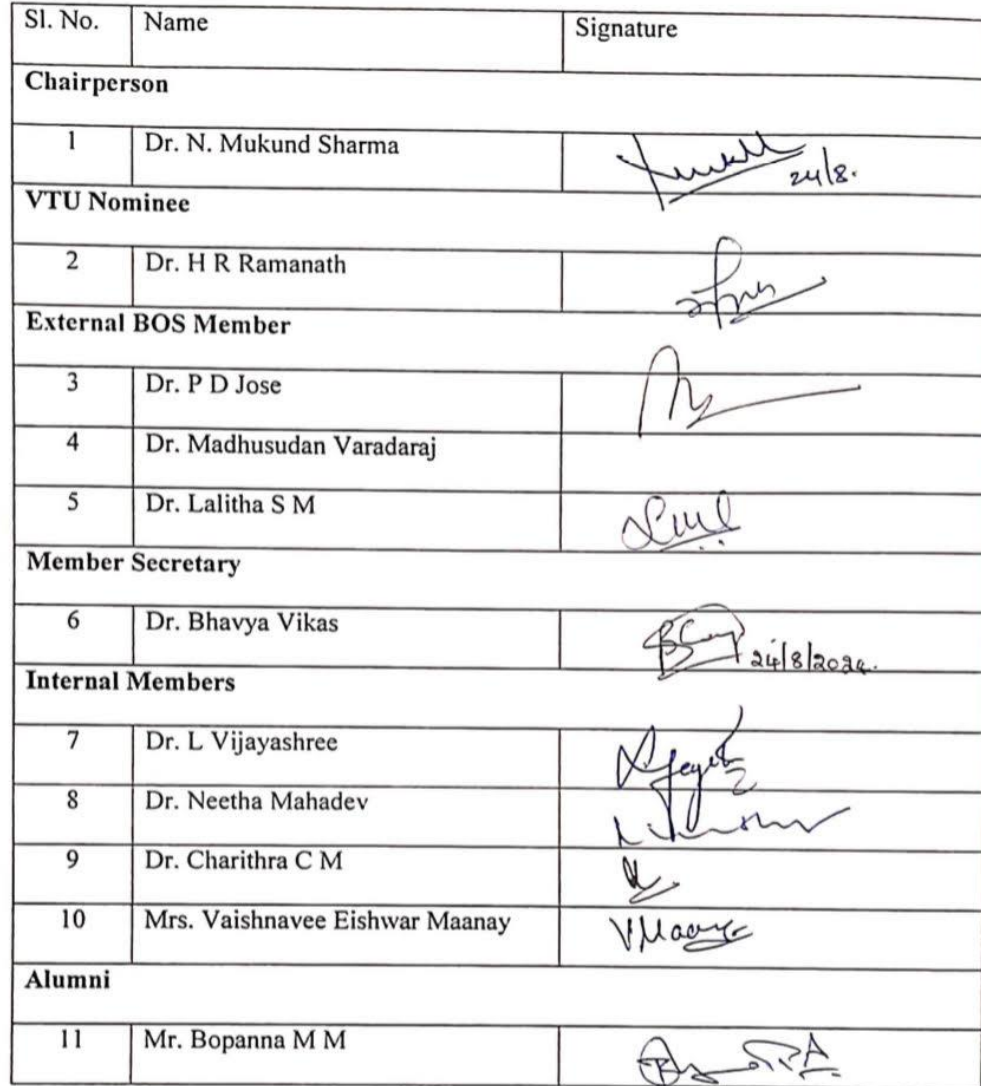 Sl. No. Name Signature
Chairperson
1 Dr. N. Mukund Sharma
24/8.
VTU Nominee
2 Dr. H R Ramanath
External BOS Member
3 Dr. P D Jose
4 Dr. Madhusudan Varadaraj
5 Dr. Lalitha S M
Member Secretary
6 Dr. Bhavya Vikas
24/8/2024.
Internal Members
7 Dr. L Vijayashree
8 Dr. Neetha Mahadev
9 Dr. Charithra C M
10 Mrs. Vaishnavee Eishwar Maanay
Alumni
11 Mr. Bopanna M M